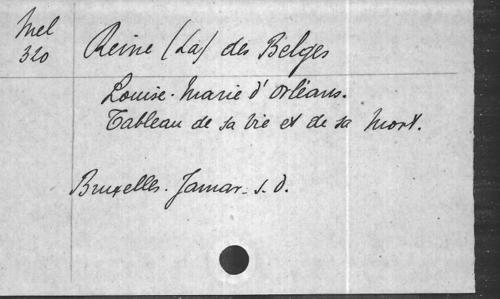 Mel
320
Reine (La) des Belges
Louise-Marie d'Orléans.
Tableau de sa vie et de sa mort.
Bruxelles. Jamar. s. d.